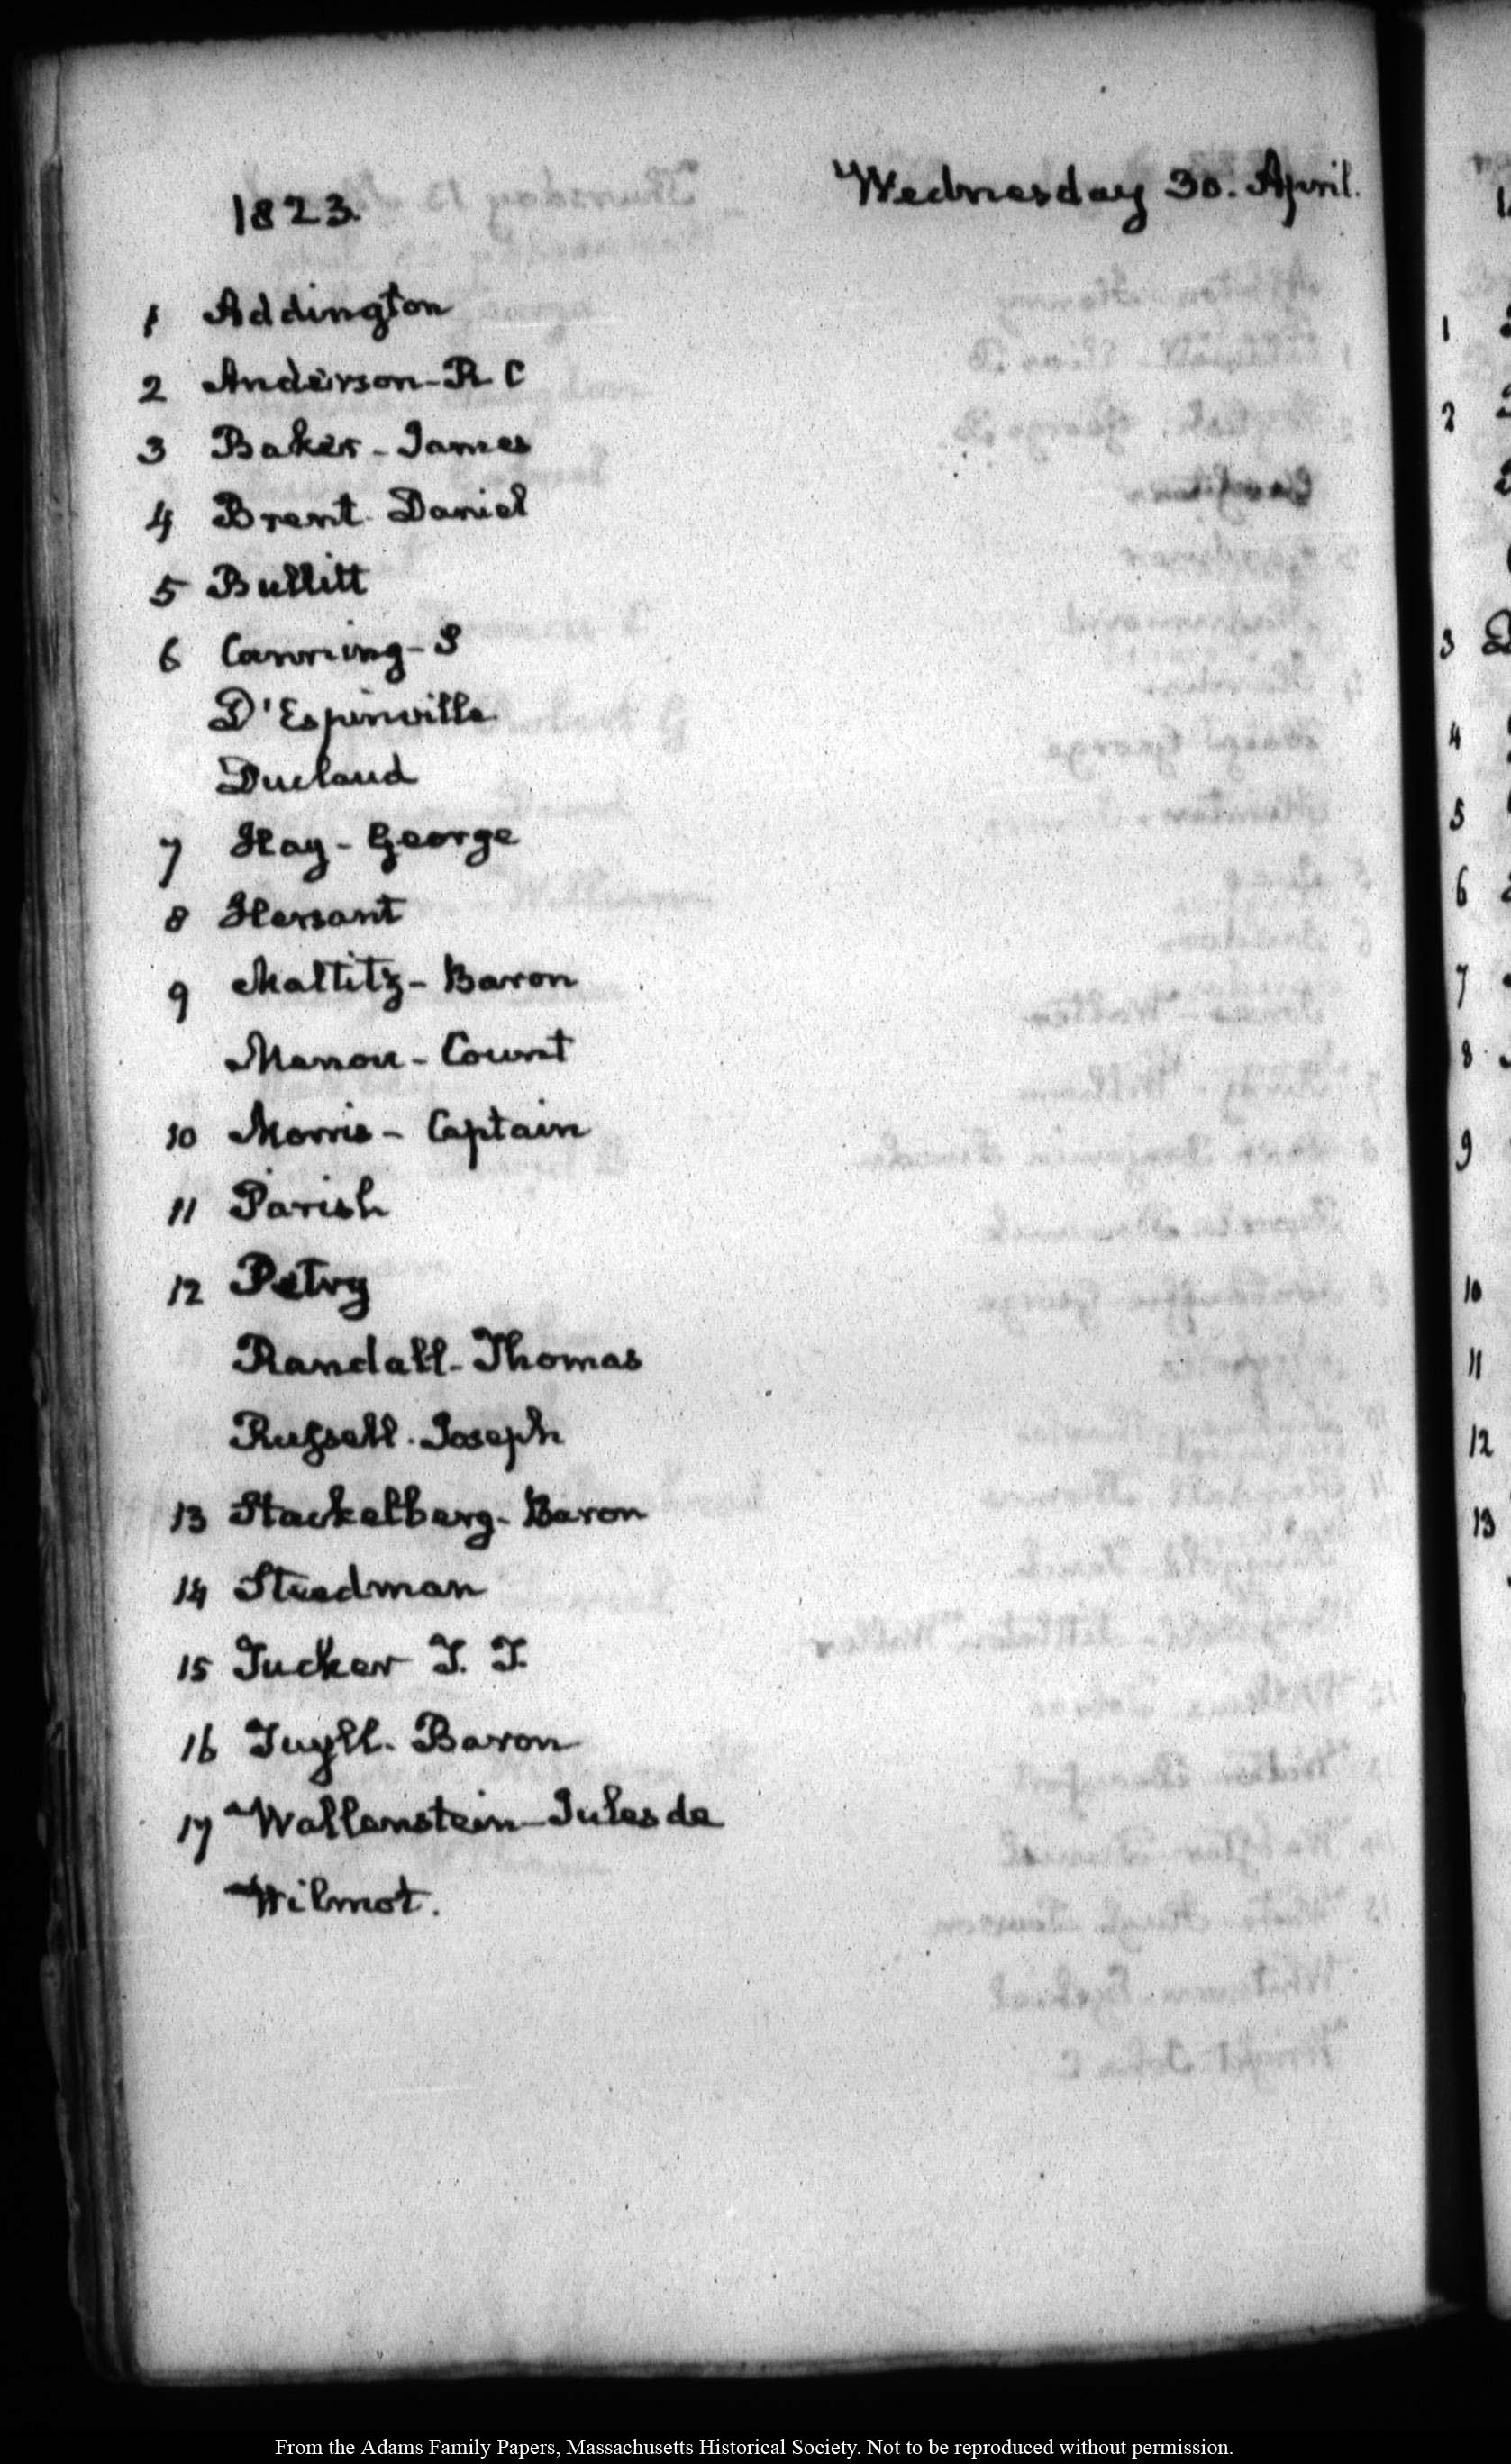 1823.
Wednesday 30. April.
1 Addington
2 Anderson - R C
3 Baker - James
4 Brent Daniel
5 Bullitt
6 Canning - S
D'Espinville
Ducland
7 Hay - George
8 Hersant
9 Maltitz - Baron
Menou - Count
10 Morris - Captain
11 Parish
12 Petry
Randall - Thomas
Russell. Joseph
13 Stackelberg - Baron
14 Steedman
15 Tucker T. T.
16 Tuyll. Baron
17 Wallenstein - Jules de
Wilmot.
1
2
3
4
5
6
7
8
9
10
11
12
13
From the Adams Family Papers, Massachusetts Historical Society. Not to be reproduced without permission.